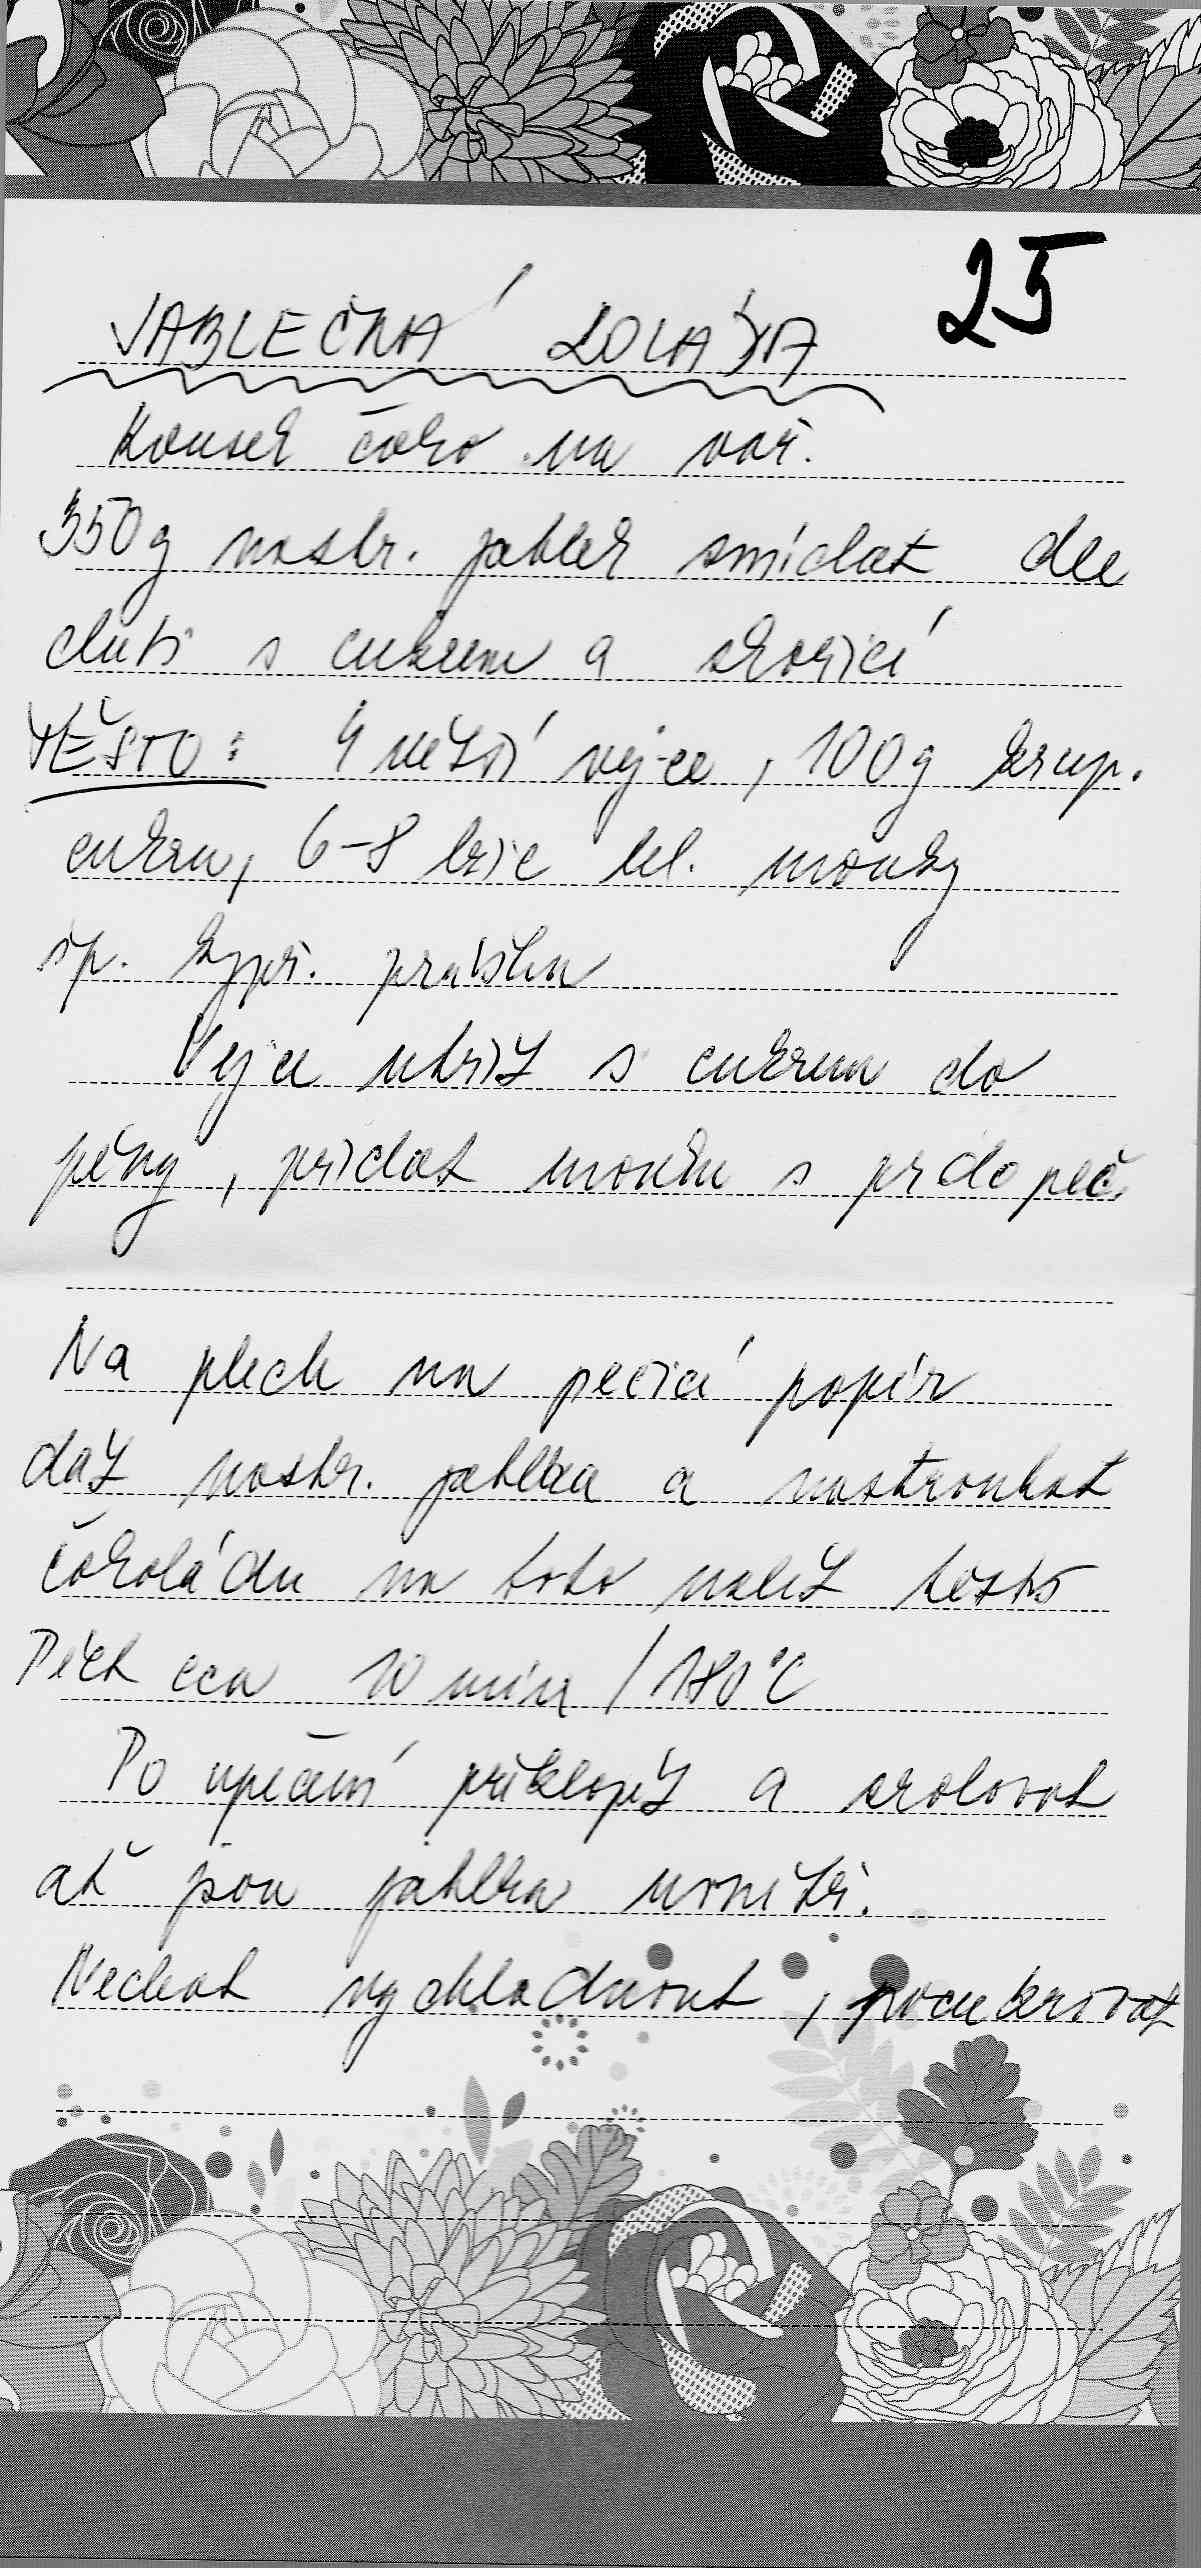 25
JABLEČNÁ ROLÁDA
Kousek čoko na vař.
350g nastr. jablek smíchat dle
chuti s cukrem a skořicí
TĚSTO: 4 větší vejce, 100g krup.
cukru, 6-8 lžic hl. mouky
šp. kypř. prášku
Vejce utřít s cukrem do
pěny, přidat mouku s pr do peč.
Na plech na pečící papír
dát nastr. jablka a nastrouhat
čokoládu na toto nalít těsto
Péct cca 10 min / 180°C
Po upečení přiklopit a srolovat
ať jsou jablka uvnitř.
Nechat vychladnout, pocukrovat